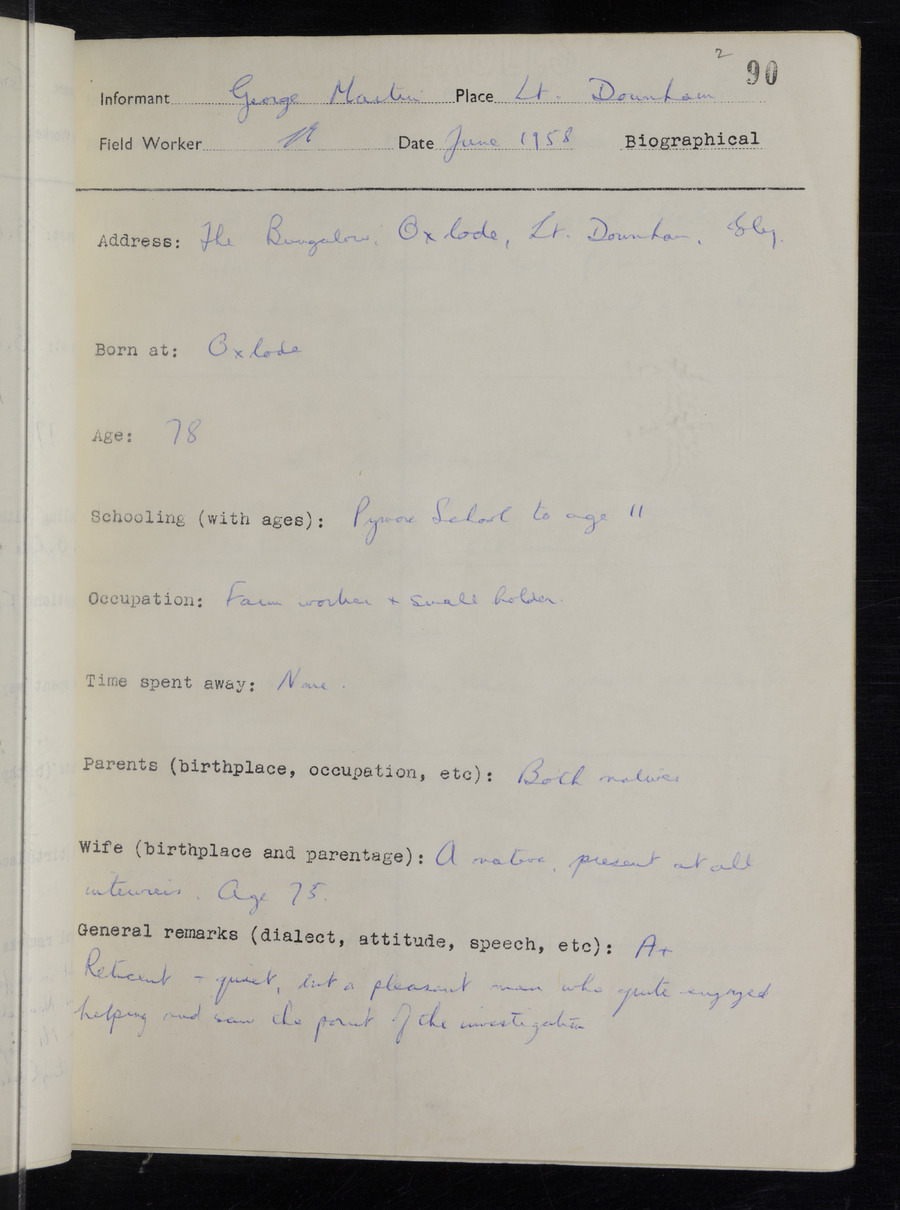 2 90
Informant George Martin Place Lt. Downham
Field Worker Date June 1958 Biographical
Address: The Bungalow, Oxlode, Lt. Downham, Ely.
Born at: Oxlode
Age: 78
Schooling (with ages): Pymore School to age 11
Occupation: Farm worker + small holder.
Time spent away: None.
Parents (birthplace, occupation, etc): Both natives
Wife (birthplace and parentage): A native, present at all
interveis. Age 75.
General remarks (dialect, attitude, speech, etc): A+
Reticent - quiet, but a pleasant man who quite enjoyed
helping and saw the point of the investigation